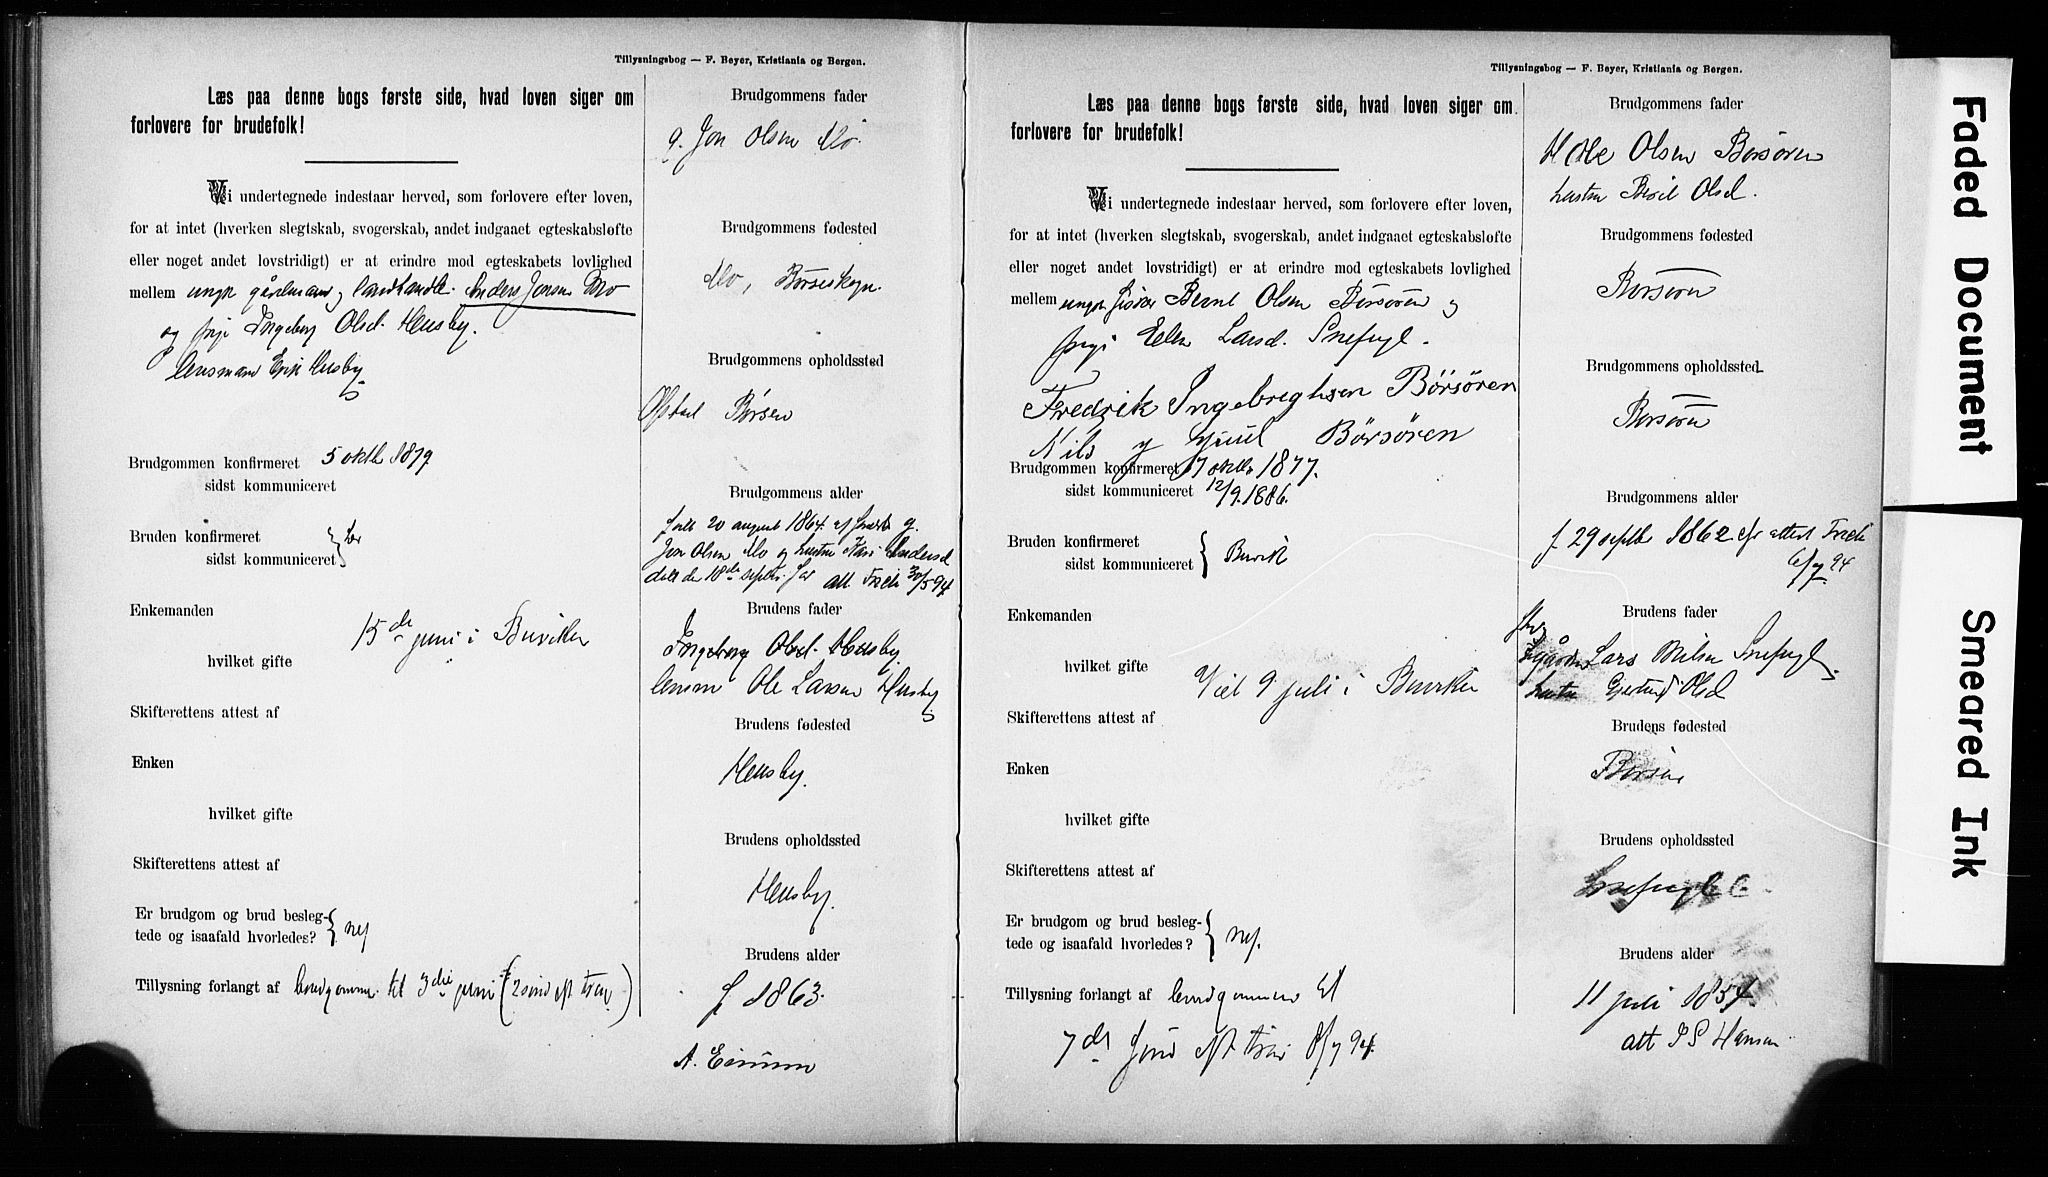 Tillysningsbog — F. Beyer, Kristiania og Bergen.
Læs paa denne bogs første side, hvad loven siger om
forlovere for brudefolk!
Vi undertegnede indestaar herved, som forlovere efter loven,
for at intet (hverken slegtskab, svogerskab, andet indgaaet egteskabsløfte
eller noget andet lovstridigt) er at erindre mod egteskabets lovlighed
mellem ungk gårdmand og landhandl. Anders Jonsen Mo
og pige Ingeborg Olsd. Husby.
lensmand Erik Husby
Brudgommen konfirmeret 5 oktb 1879
sidst kommuniceret
Bruden konfirmeret
sidst kommuniceret
Enkemanden
15de juni i Buviken
hvilket gifte
Skifterettens attest af
Enken
hvilket gifte
Skifterettens attest af
Er brudgom og brud besleg-
tede og isaafald hvorledes? nej
Tillysning forlangt af brudgommen til 3die juni (2 sønd eft trin)
Brudgommens fader
g. Jon Olsen Mo.
Brudgommens fødested
Mo, Børseskogn.
Brudgommens opholdssted
Børsen
Brudgommens alder
født 20 august 1864 af
Jon Olsen Mo og hustru Kari Andersd
døbt den 18de septbr. att 30/5 94
Brudens fader
Ingeborg Olsd. Husby
lensm Ole Larsen Husby
Brudens fødested
Husby.
Brudens opholdssted
Husby.
Brudens alder
f 1863.
Tillysningsbog — F. Beyer, Kristiania og Bergen.
Læs paa denne bogs første side, hvad loven siger om
forlovere for brudefolk!
Vi undertegnede indestaar herved, som forlovere efter loven,
for at intet (hverken slegtskab, svogerskab, andet indgaaet egteskabsløfte
eller noget andet lovstridigt) er at erindre mod egteskabets lovlighed
mellem ungk fisker Bernt Olsen Børsøren og
pige Ellen Larsd. Snefugl.
Fredrik Ingebreghsen Børsøren
Nils Børsøren
Brudgommen konfirmeret 7 oktbr 1877.
sidst kommuniceret 12/9.1886.
Bruden konfirmeret
sidst kommuniceret Buvik
Enkemanden
hvilket gifte
Viet 9 juli i Buviken
Skifterettens attest af
Enken
hvilket gifte
Skifterettens attest af
Er brudgom og brud besleg-
tede og isaafald hvorledes? nej.
Tillysning forlangt af brudgommen til
7de sønd eft trin 8/7 94.
Brudgommens fader
Ole Olsen Børsøren
hustru Beril Olsd.
Brudgommens fødested
Børsøren
Brudgommens opholdssted
Børsøren
Brudgommens alder
f 29 septb 1862 efr attest
6/7 94
Brudens fader
Lars Nilsen Snefugl
hustru Gjertrud Olsd
Brudens fødested
Brudens opholdssted
Snefugl
Brudens alder
11 juli 1857
att S Hansen
Faded Document
Smeared Ink